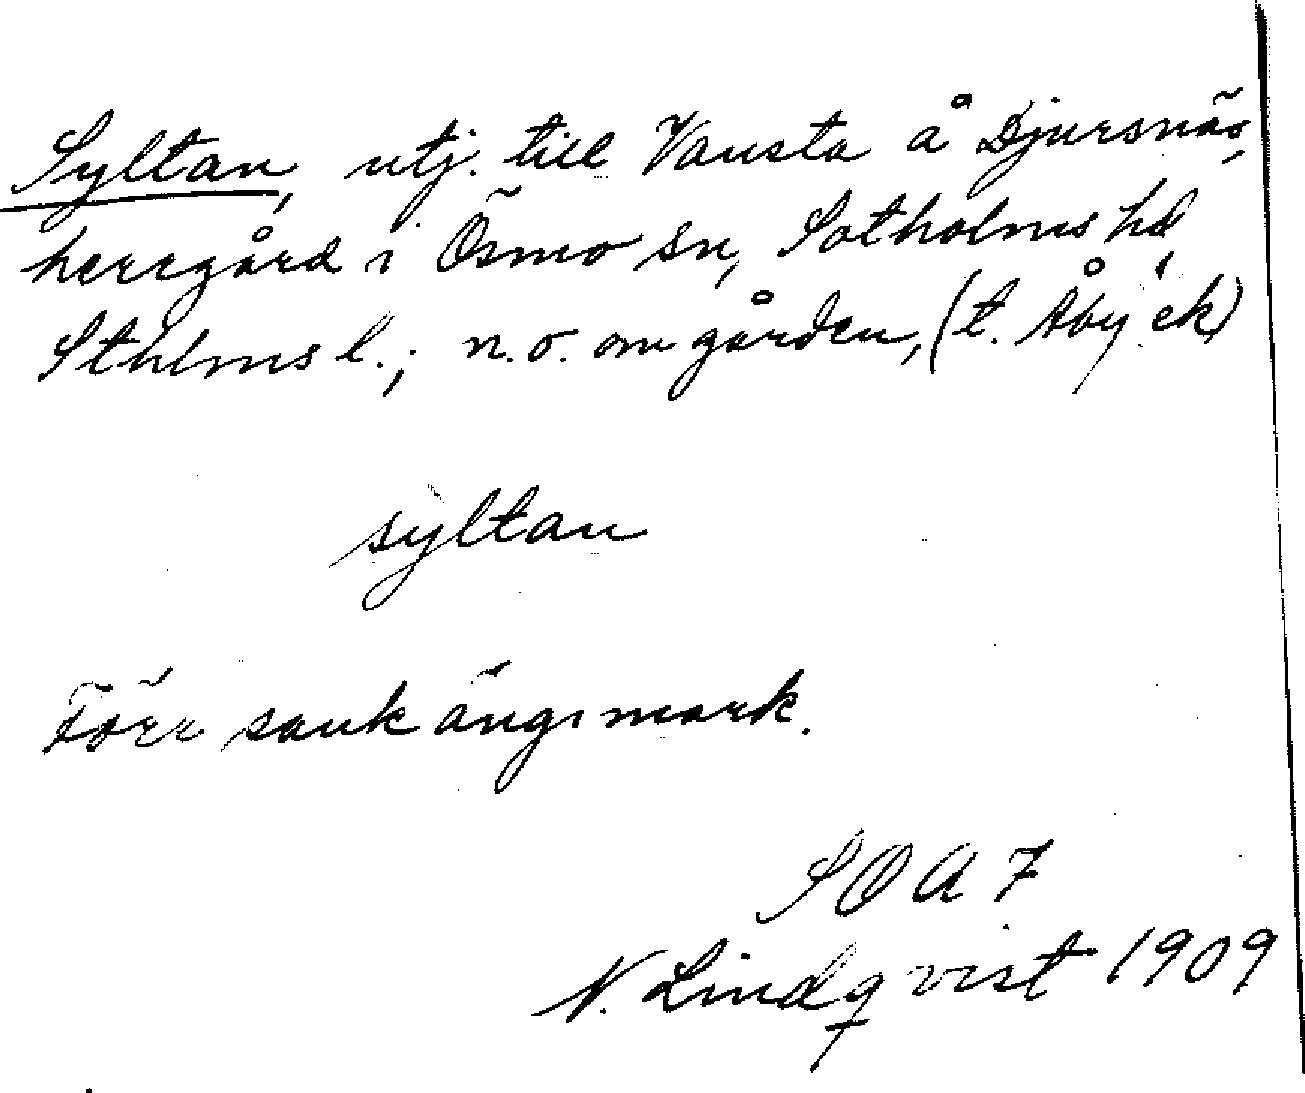 Syltan, utj. till Vansta å Djursnäs,
herrgård i Ösmo sn, Sotholms hd,
Sthlms l.; n.o. om gården, (t. Åby ek)
syltan
Förr sank ängsmark.
SOA 7
N. Lindqvist 1909